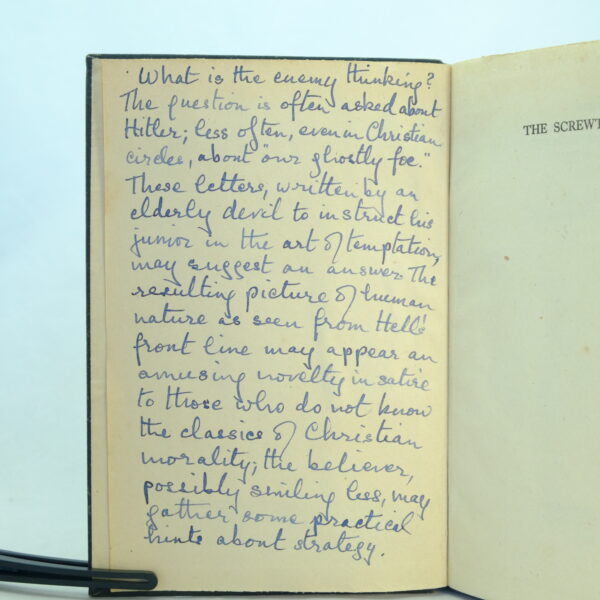 What is the enemy thinking?
The question is often asked about
Hitler; less often, even in Christian
circles, about "our ghostly foe."
These letters, written by an
elderly devil to instruct his
junior in the art of temptation,
may suggest an answer. The
resulting picture of human
nature as seen from Hell's
front line may appear an
amusing novelty in satire
to those who do not know
the classics of Christian
morality; the believer,
possibly smiling less, may
gather some practical
hints about strategy.
THE SCREWT